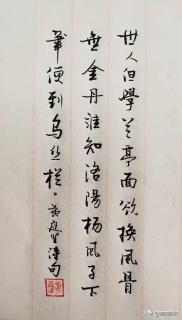 世人但學兰亭面欲换凨骨
無金丹誰知洛陽楊凨子下
筆便到烏丝栏。黄庭堅诗句